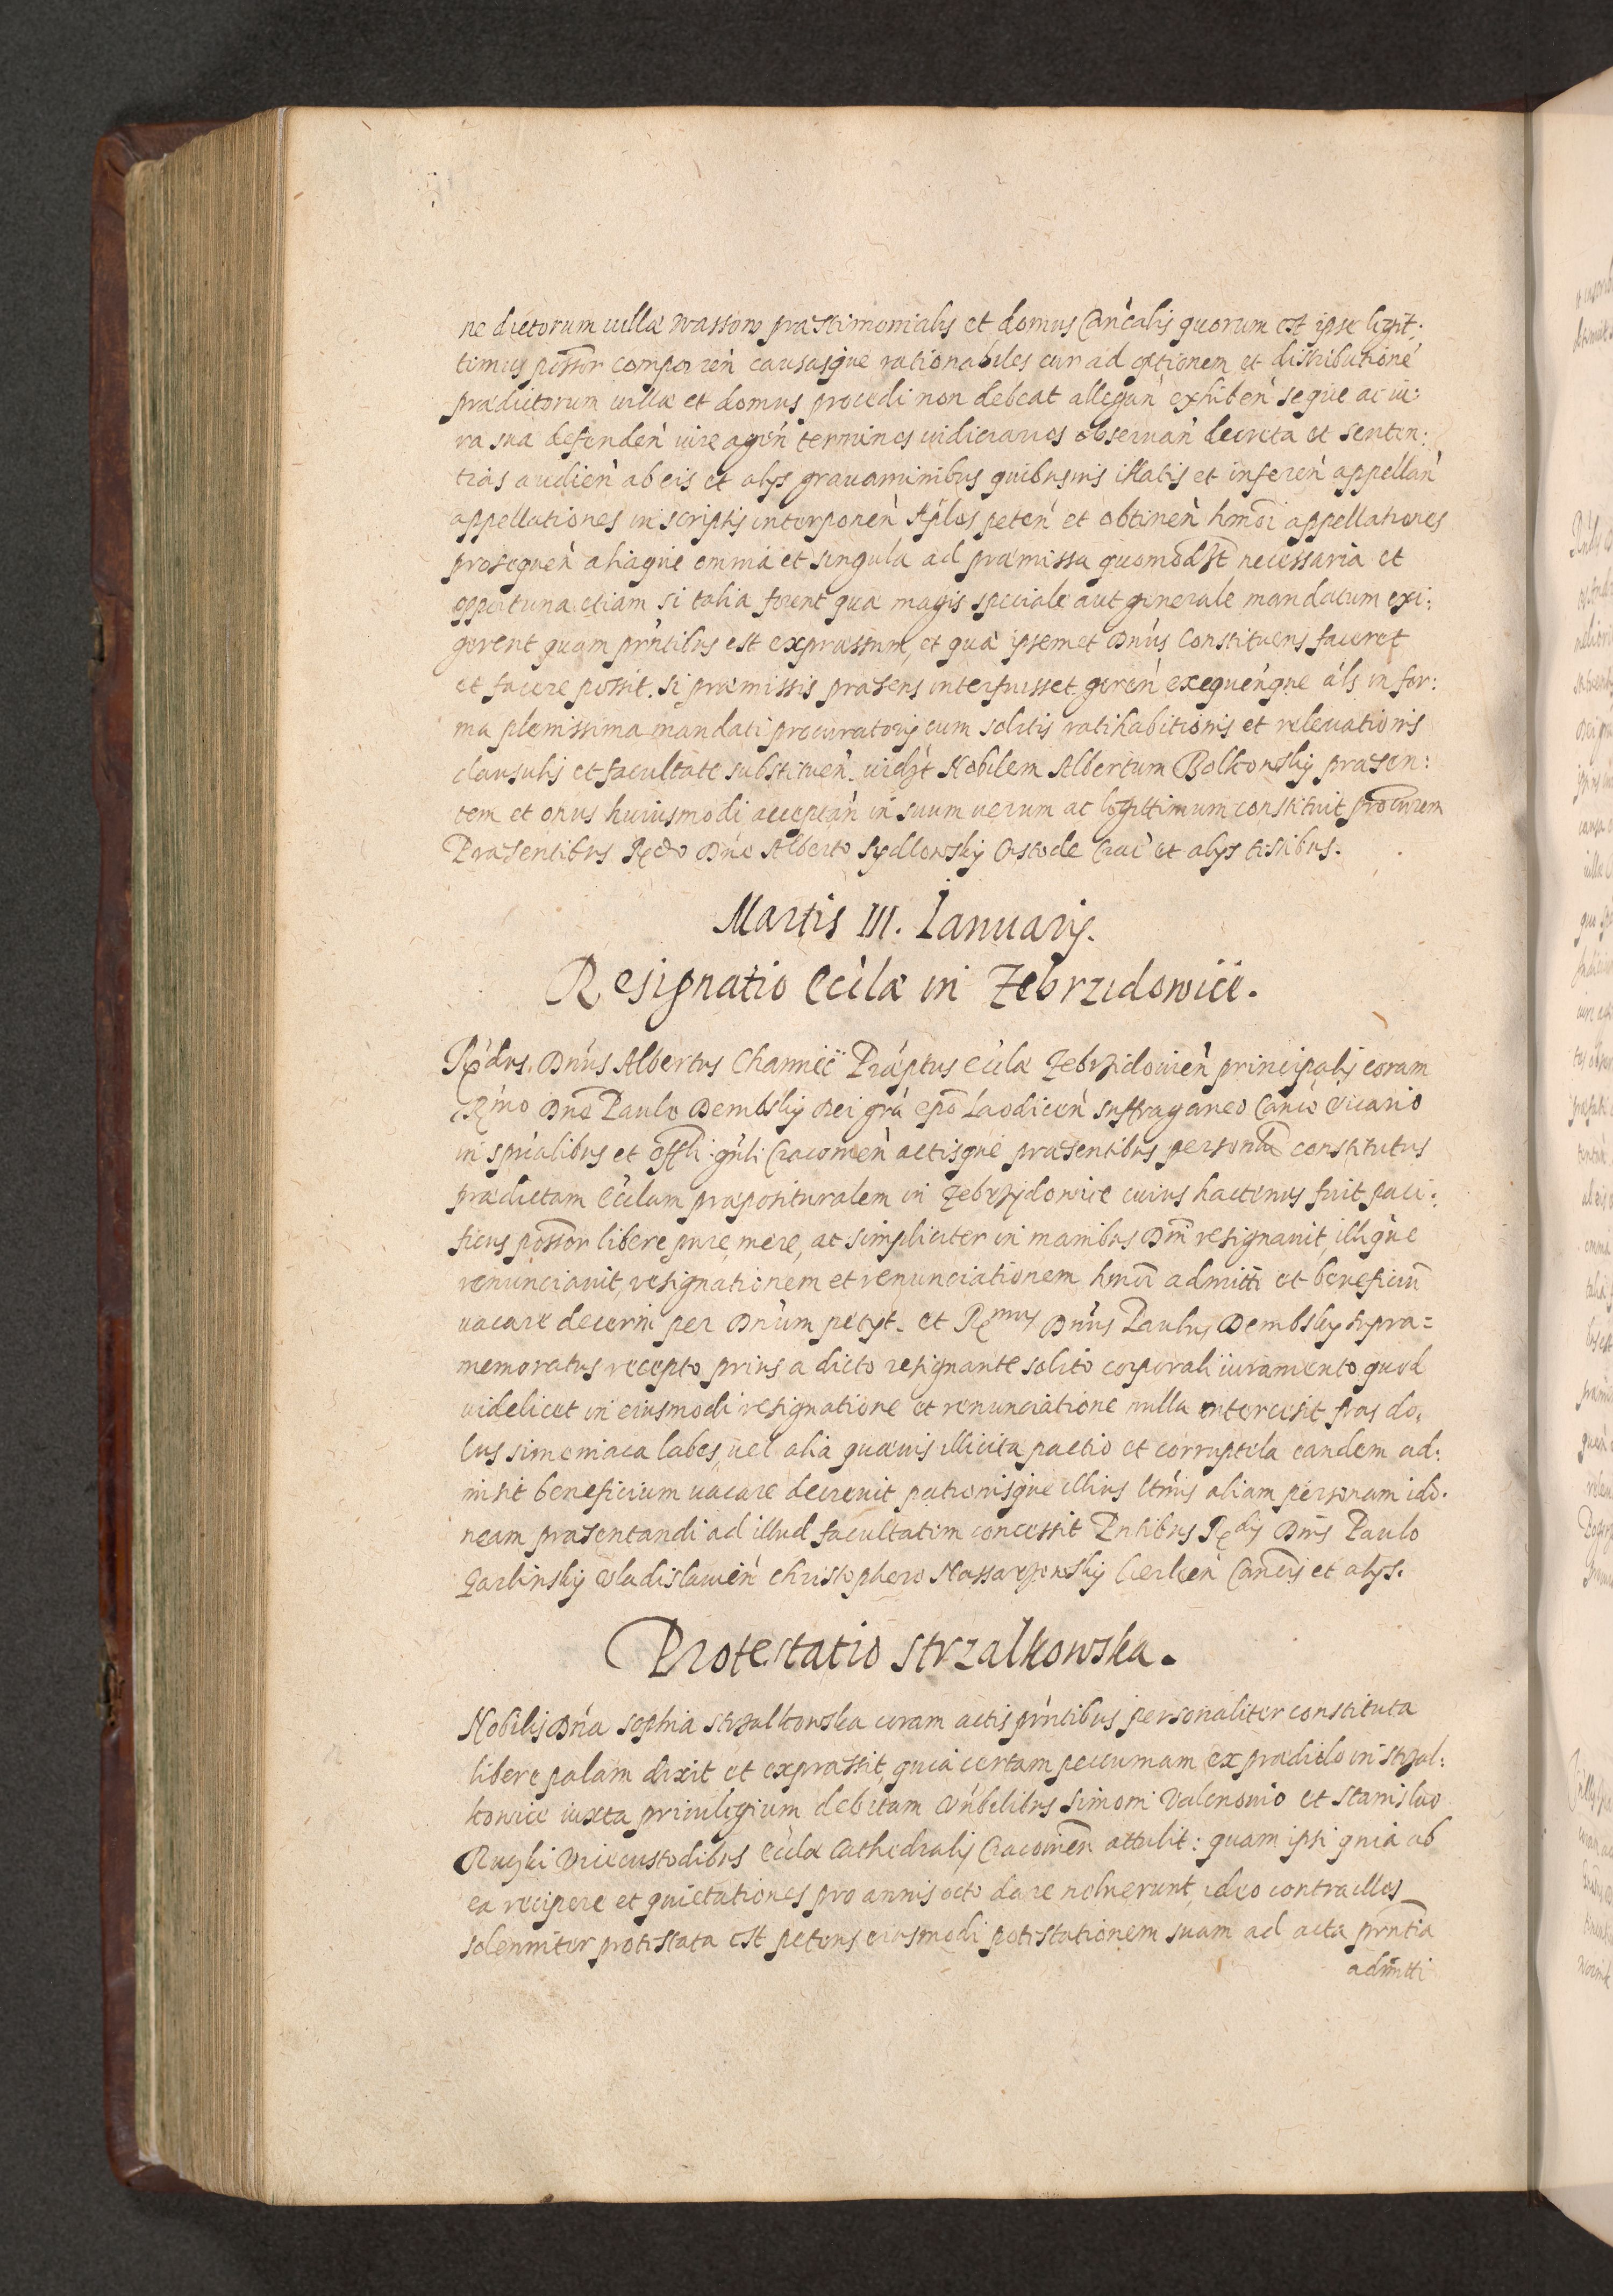 ne dictorum uillæ Wassow præstimonialis et domus Can̄calis quorum est ipse legit:
timus possor comparen̄ causasque rationabiles cur ad optionem et distributionē
prædictorum uillæ et domus procedi non debeat allegan̄ exhiben̄ seque ac iu:
ra sua defenden̄ iure agen̄ terminos iudiciarios obseruan̄ decreta et senten:
tias audien̄ ab eis et alys grauaminibus quibusuis illatis et inferen̄ appellan̄
appellationes in scriptis interponen̄ Aplos peten̄ et obtinen̄ hmōi appellationes
prosequen̄ aliaque omnia et singula ad præmissa quomodlt necessaria et
opportuna etiam si talia forent quæ magis speciale aut generale mandatum exi:
gerent quam prn̄tibus est expræssum, et quæ ipsemet Dn̄us Constituens faceret
et facere possit. si præmissis præsens interfuisset geren̄ exequen̄que āls in for:
ma plenissima mandati procuratorij cum solitis ratihabitionis et releuationis
clausulis et facultate substituen̄ uidzt Nobilem Albertum Bolkowsky præsen:
tem et onus huiusmodi acceptan̄ in suum uerum ac legittimum constituit procurem
Præsentibus Rdo Dn̄o Alberto Sydlowsky Custode Crac̄ et alys testibus.
Martis III. Ianuarij.
Resignatio Ecclæ in Zebrzidowice.
Rn̄dus. Dn̄us Albertus Channicÿ Præptus Ecclæ Zebrzidowien̄ principalis coram
Rmo Dn̄o Paulo Dembsky Dei grā epō Laodicen̄ suffraganeo Canco Vicario
in spūalibus et offli gn̄li Cracouien̄ actisque præsentibus personlr constitutus
prædictam Ecclam præposituralem in Zebrzydowice cuius hactenus fuit paci:
ficus possor libere pure, mere, ac simpliciter in manibus Dn̄i resignauit, illique
renunciauit, resignationem et renunciationem hmōi admitti et beneficiū
uacare decerni per Dn̄um petyt. et Rmus Dn̄us Paulus Dembsky supra=
memoratus recepto prius a dicto resignante solito corporali iuramento quod
uidelicet in eiusmodi resignatione et renunciatione nulla intercesit fraus do:
lus simoniaca labes, uel alia quæuis illicita pactio et corruptela eandem ad:
misit beneficium uacare decreuit patronisque illius ltmis aliam personam ido:
neam præsentandi ad illud facultatem concessit Pn̄tibus Rdis Dn̄is Paulo
Garlinsky Wladislauien̄ Christophero Nassarzowsky Kielcen̄ Cancis et alys.
Protestatio Strzalkowska.
Nobilis Dn̄a Sophia Strzalkowska coram actis prn̄tibus personaliter constituta
libere palam dixit et expræssit, quia certam pecuniam ex prædicto in Strzal:
kowice iuxta priuilegium debitam Vn̄bilibus Simoni Valenowio et Stanislao
Ruczki Vicecustodibus Ecclæ Cathedralis Cracouien̄ attulit: quam ipsi quia ab
ea recipere et quietationes pro annis octo dare noluerunt, ideo contra illos
solenniter protestata est petens eiusmodi protestationem suam ad acta prn̄tia
admitti